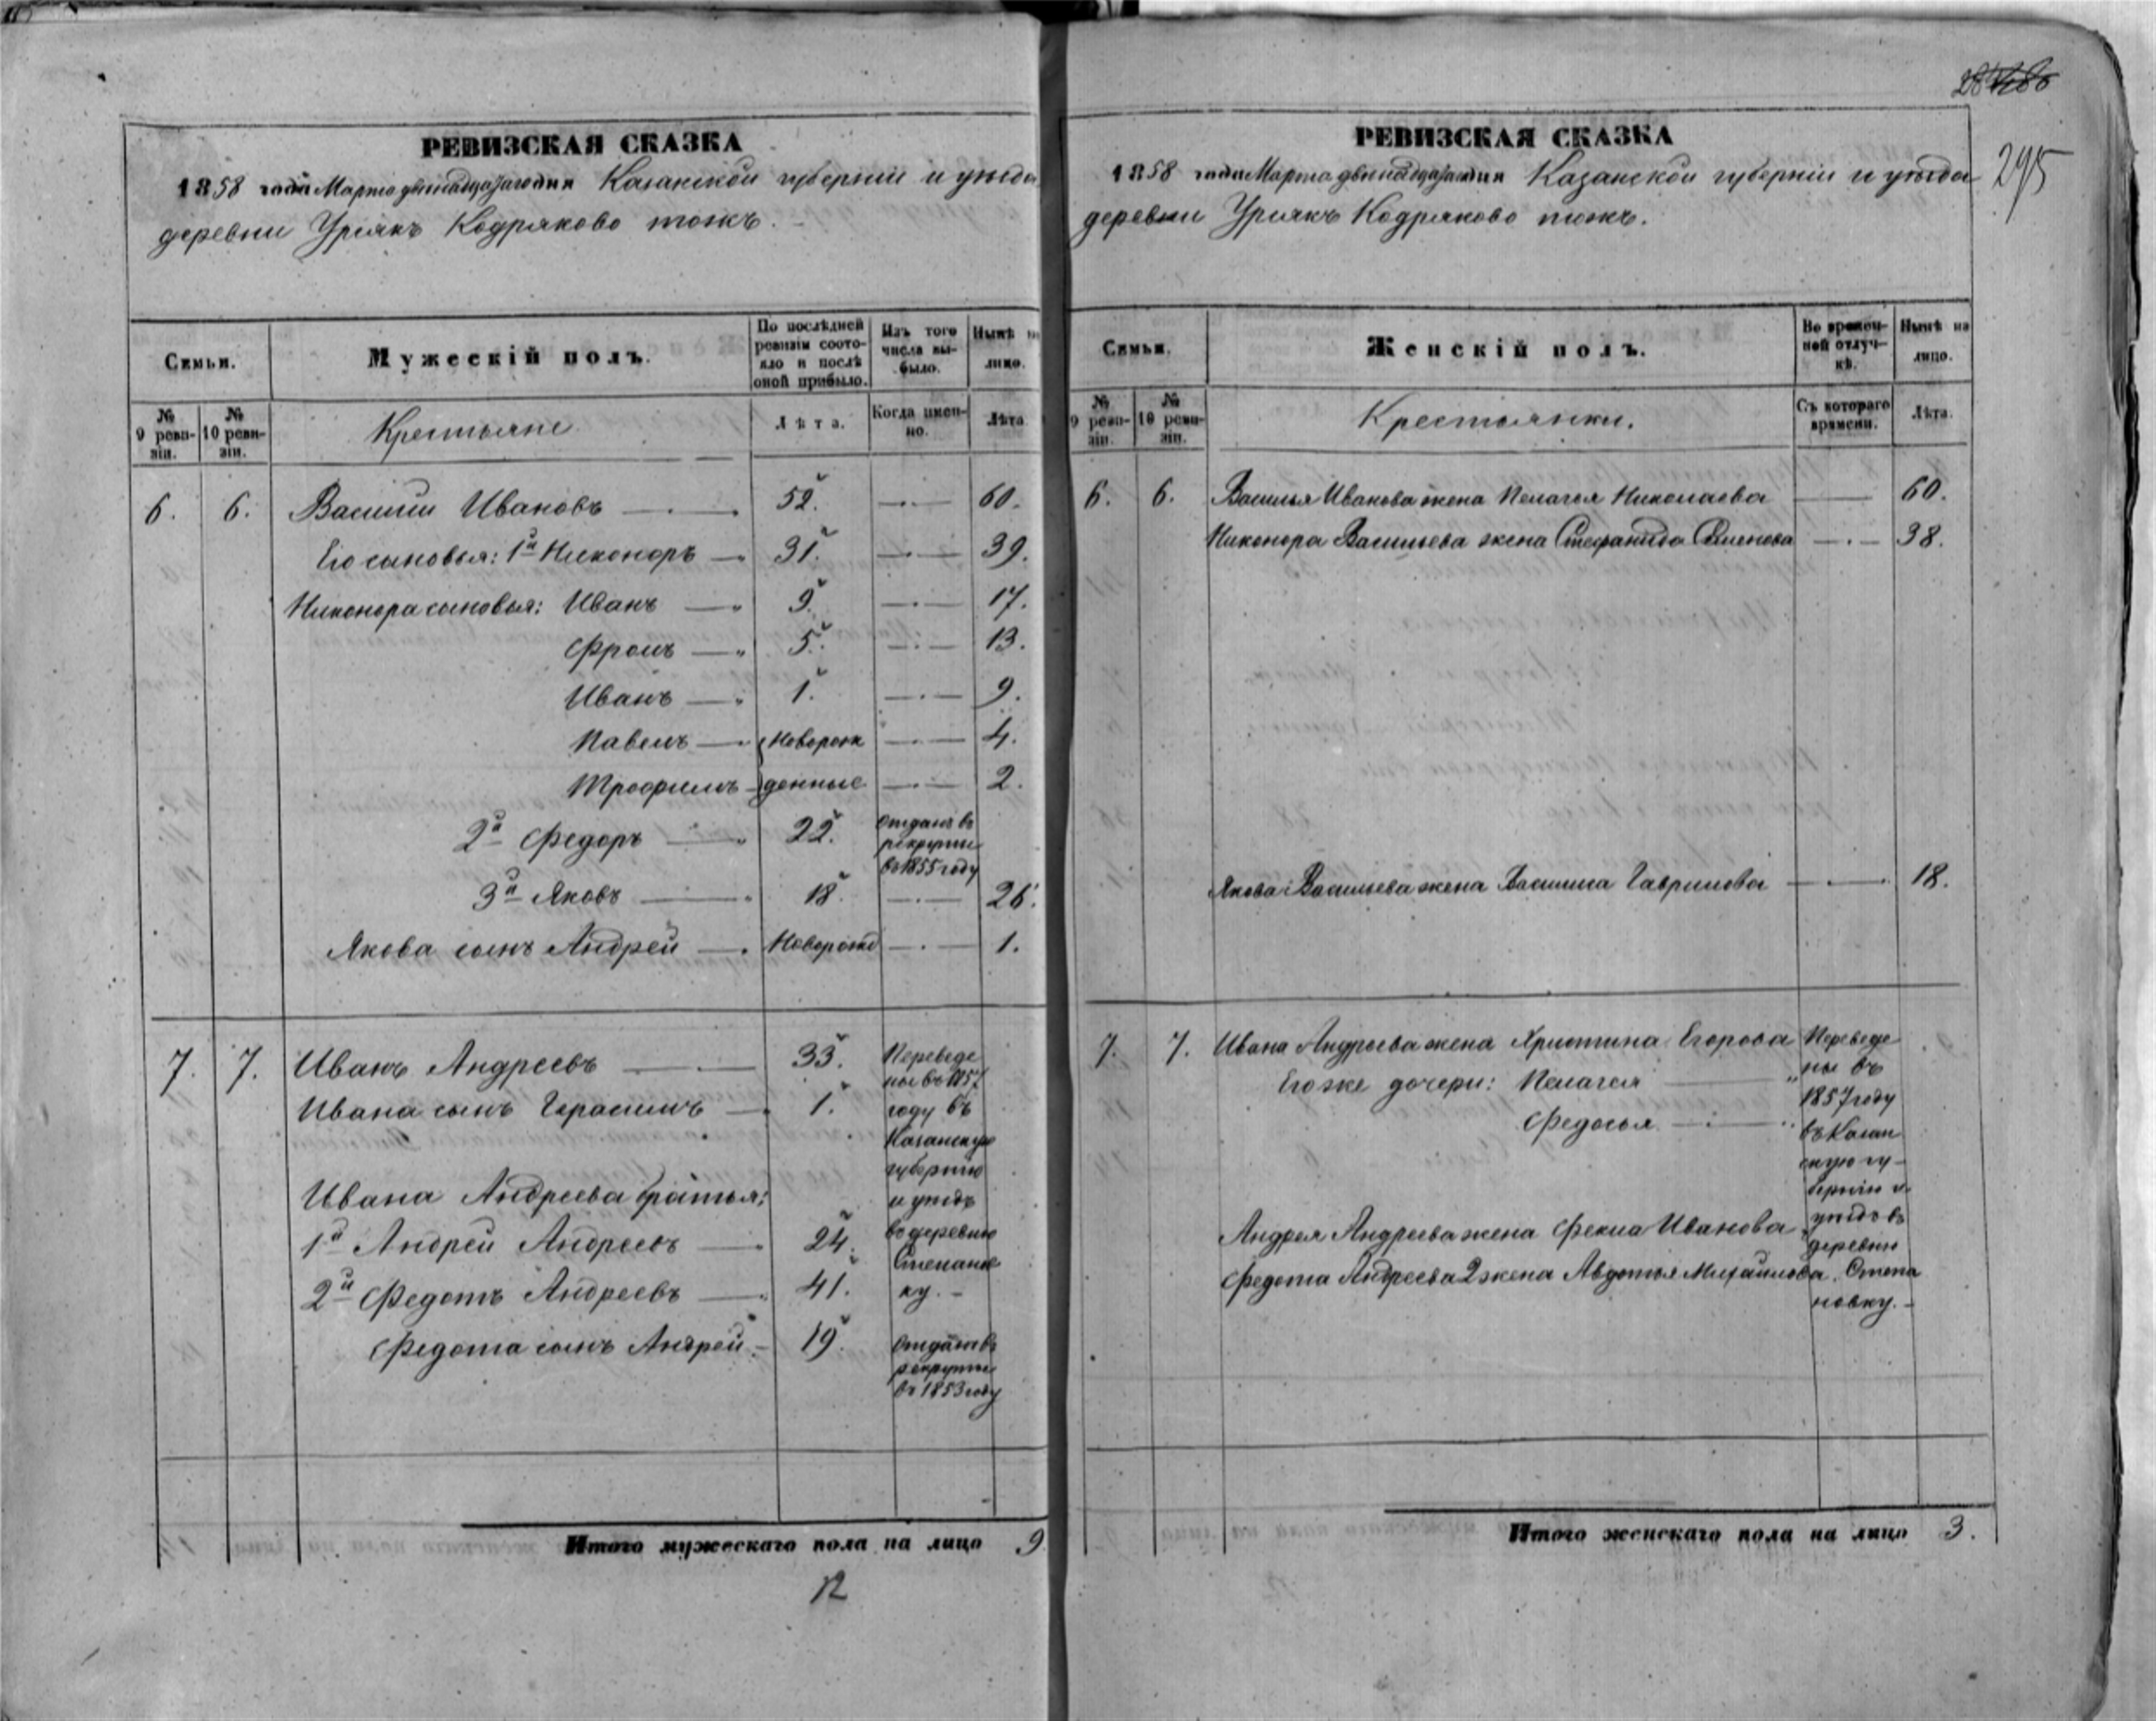 РЕВИЗСКАЯ СКАЗКА
1858 года Марта двенадцатаго дня Казанской губернiи и уѣзда
деревни Урiякъ Кодряково тожъ.
Семьи.
Мужескiй полъ.
По послѣдней ревизiи состояло и послѣ оной прибыло.
Изъ того числа выбыло.
Нынѣ на лицо.
№ 9 ревизiи.
№ 10 ревизiи.
Крестьяне
Лѣта.
Когда именно.
Лѣта
6. 6. Василiй Ивановъ 52. 60.
Его сыновья: 1й Никоноръ 31. 39.
Никонора сыновья: Иванъ 9. 17.
Фролъ 5. 13.
Иванъ 1. 9.
Павелъ Новорож 4.
Трофимъ денные 2.
2й Федоръ 22. отданъ въ
рекруты
въ 1855 году
3й Яковъ 18. 26.
Якова сынъ Андрей Новорожд 1.
7. 7. Иванъ Андреевъ 33. Переведе
ны въ 1857
Ивана сынъ Герасимъ 1. году въ
Казанскую
губернiю
Ивана Андреева братья: и уѣздъ
1й Андрей Андреевъ 24. въ деревню
Степанов
2й Федотъ Андреевъ 41. ку.
Федота сынъ Андрей 19. отданъ въ
рекруты
въ 1853 году
Итого мужескаго пола на лицо 9
12
295
РЕВИЗСКАЯ СКАЗКА
1858 года Марта двенадцатаго дня Казанской губернiи и уѣзда
деревни Урiякъ Кодряково тожъ.
Семьи.
Женскiй полъ.
Во временной отлучкѣ.
Нынѣ на лицо.
№ 9 ревизiи.
№ 10 ревизiи.
Крестьянки.
Съ котораго времени.
Лѣта.
6. 6. Василья Иванова жена Пелагея Николаева 60.
Никонора Васильева жена Стефанида Семенова 38.
Якова Васильева жена Василиса Гаврилова 18.
7. 7. Ивана Андреева жена Христина Егорова Переведе
Его же дочери: Пелагея ны въ
1857 году
Федосья въ Казан
скую гу-
бернiю и
уѣздъ въ
Андрея Андреева жена Фекла Иванова деревню
Федота Андреева 2 жена Авдотья Михайлова. Степа
новку.
Итого женскаго пола на лицо 3.